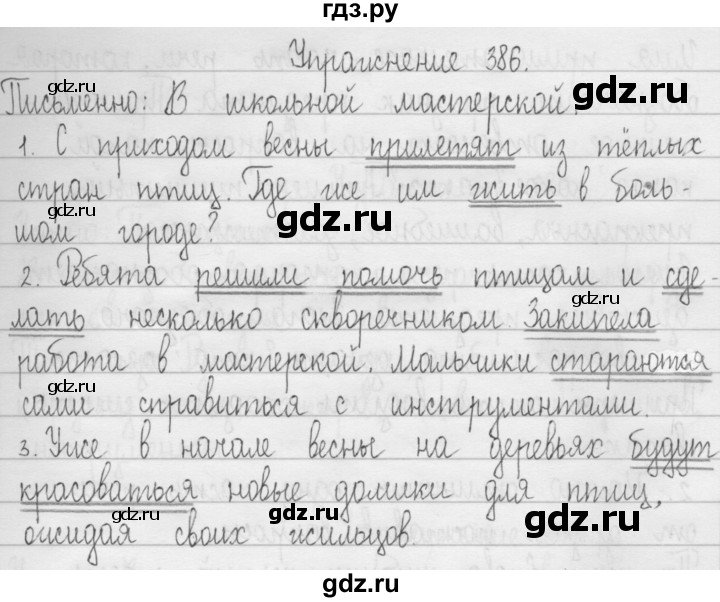 гдз.ру
Упражнение 386.
Письменно: В школьной мастерской.
1. С приходом весны прилетят из тёплых
стран птиц. Где же им жить в боль-
шом городе?
2. Ребята решили помочь птицам и сде-
лать несколько скворечником. Закипела
работа в мастерской. Мальчики стараются
сами справиться с инструментами.
3. Уже в начале весны на деревьях будут
красоваться новые домики для птиц,
ожидая своих жильцов.
gdz.ru
gdz.ru
gdz.ru
gdz.ru
gdz.ru
gdz.ru
gdz.ru
gdz.ru
gdz.ru
gdz.ru
gdz.ru
gdz.ru
gdz.ru